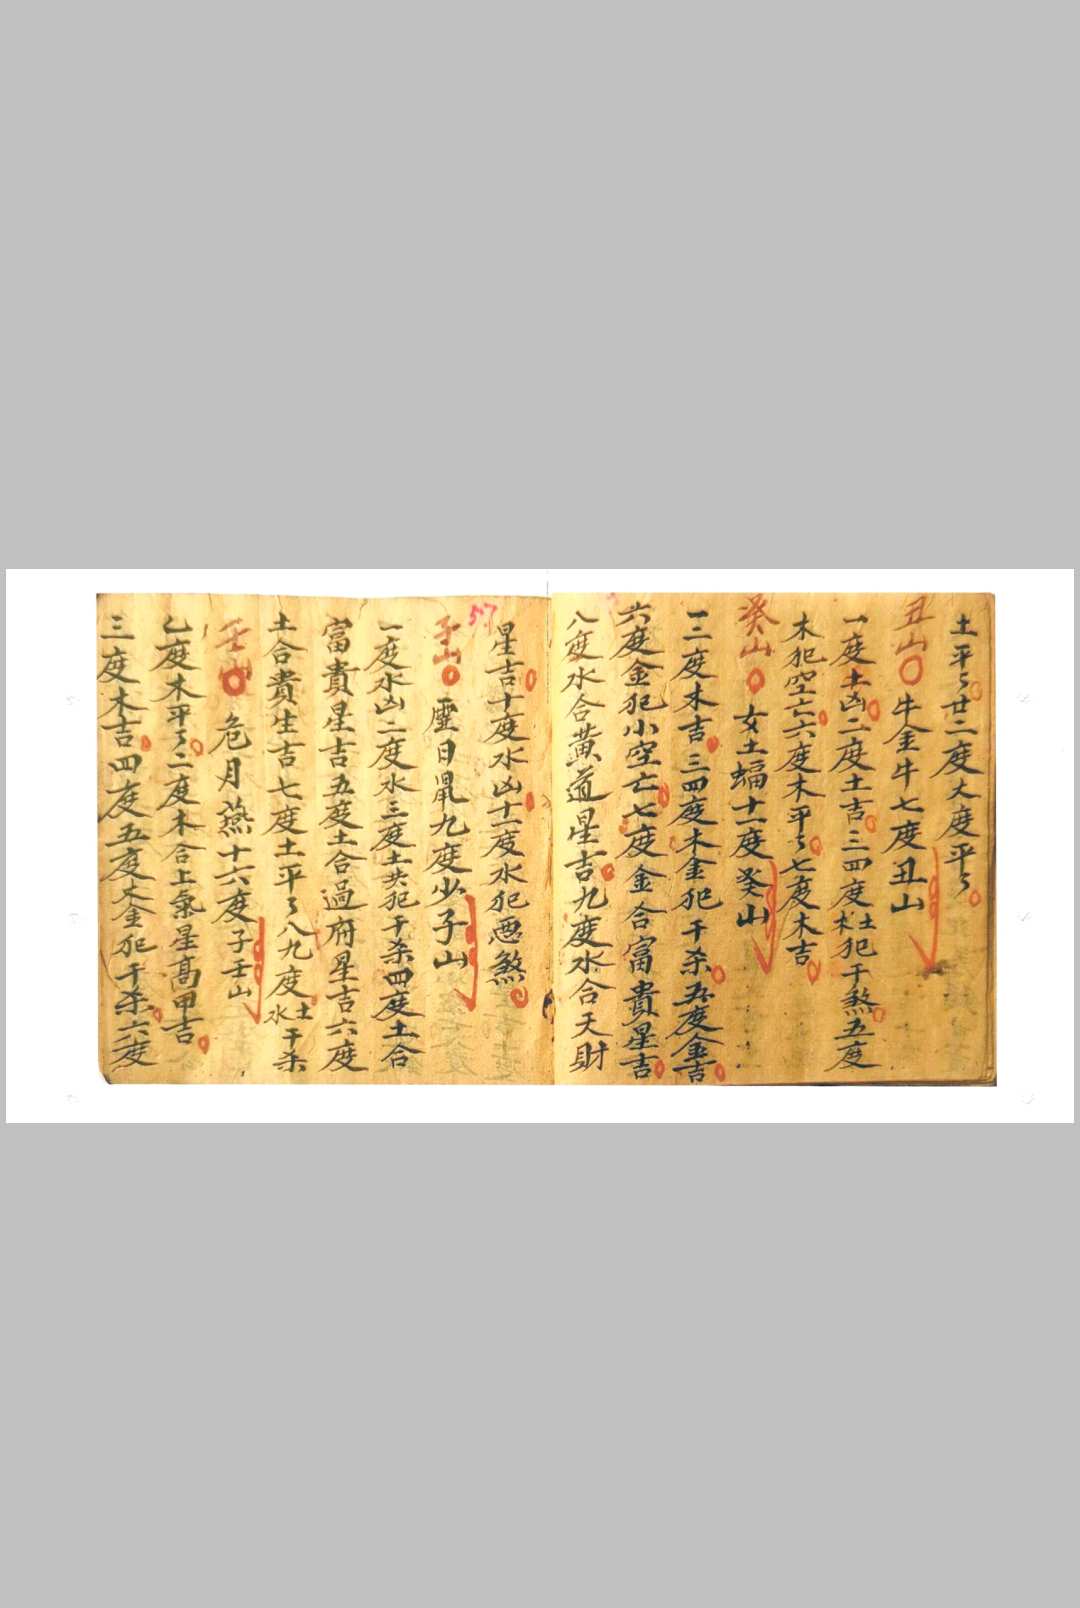 土平々廿二度大度平々
丑山 牛金牛七度丑山
一度土凶二度土吉三四度土木犯干煞五度
木犯空亡六度木平々七度木吉
癸山 女土蝠十一度癸山
一二度木吉三四度木金犯干杀五度金吉
六度金犯小空亡七度金合富貴星吉
八度水合黃道星吉九度水合天財
57
星吉十度水凶十一度水犯悪煞
子山 虛日鼠九度少子山
一度水凶二度水三度土共犯干杀四度土合
富貴星吉五度土合過府星吉六度
土合貴生吉七度土平々八九度土水干杀
壬山 危月燕十六度子壬山
乙度木平々二度木合上氣星高甲吉
三度木吉四度五度木金犯干杀六度